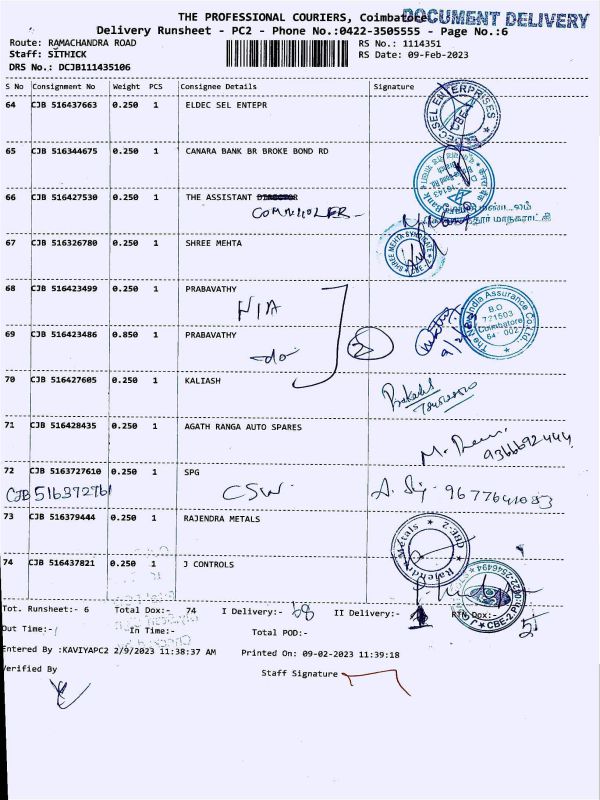 THE PROFESSIONAL COURIERS, Coimbatore
DOCUMENT DELIVERY
Delivery Runsheet - PC2 - Phone No.:0422-3505555 - Page No.:6
Route: RAMACHANDRA ROAD RS No.: 1114351
Staff: SITHICK RS Date: 09-Feb-2023
DRS No.: DCJB111435106
S No Consignment No Weight PCS Consignee Details Signature
64 CJB 516437663 0.250 1 ELDEC SEL ENTEPR
65 CJB 516344675 0.250 1 CANARA BANK BR BROKE BOND RD
66 CJB 516427530 0.250 1 THE ASSISTANT DIRECTOR
67 CJB 516326780 0.250 1 SHREE MEHTA
SHREE MEHTA SYNDICATE
68 CJB 516423499 0.250 1 PRABAVATHY
N/A
The New India Assurance Co. Ltd.
B.O
721503
Coimbatore
64 002
69 CJB 516423486 0.850 1 PRABAVATHY
-do-
2
70 CJB 516427605 0.250 1 KALIASH
71 CJB 516428435 0.250 1 AGATH RANGA AUTO SPARES
9366692444
72 CJB 5163727610 0.250 1 SPG
CJB 516372761 CSW. 9677641083
73 CJB 516379444 0.250 1 RAJENDRA METALS
Rajendra Metals CBE-2
74 CJB 516437821 0.250 1 J CONTROLS
Tot. Runsheet:- 6 Total Dox:- 74 I Delivery:- 68 II Delivery:- RTN Dox:-
Out Time:- In Time:- Total POD:-
Entered By :KAVIYAPC2 2/9/2023 11:38:37 AM Printed On: 09-02-2023 11:39:18
Verified By Staff Signature